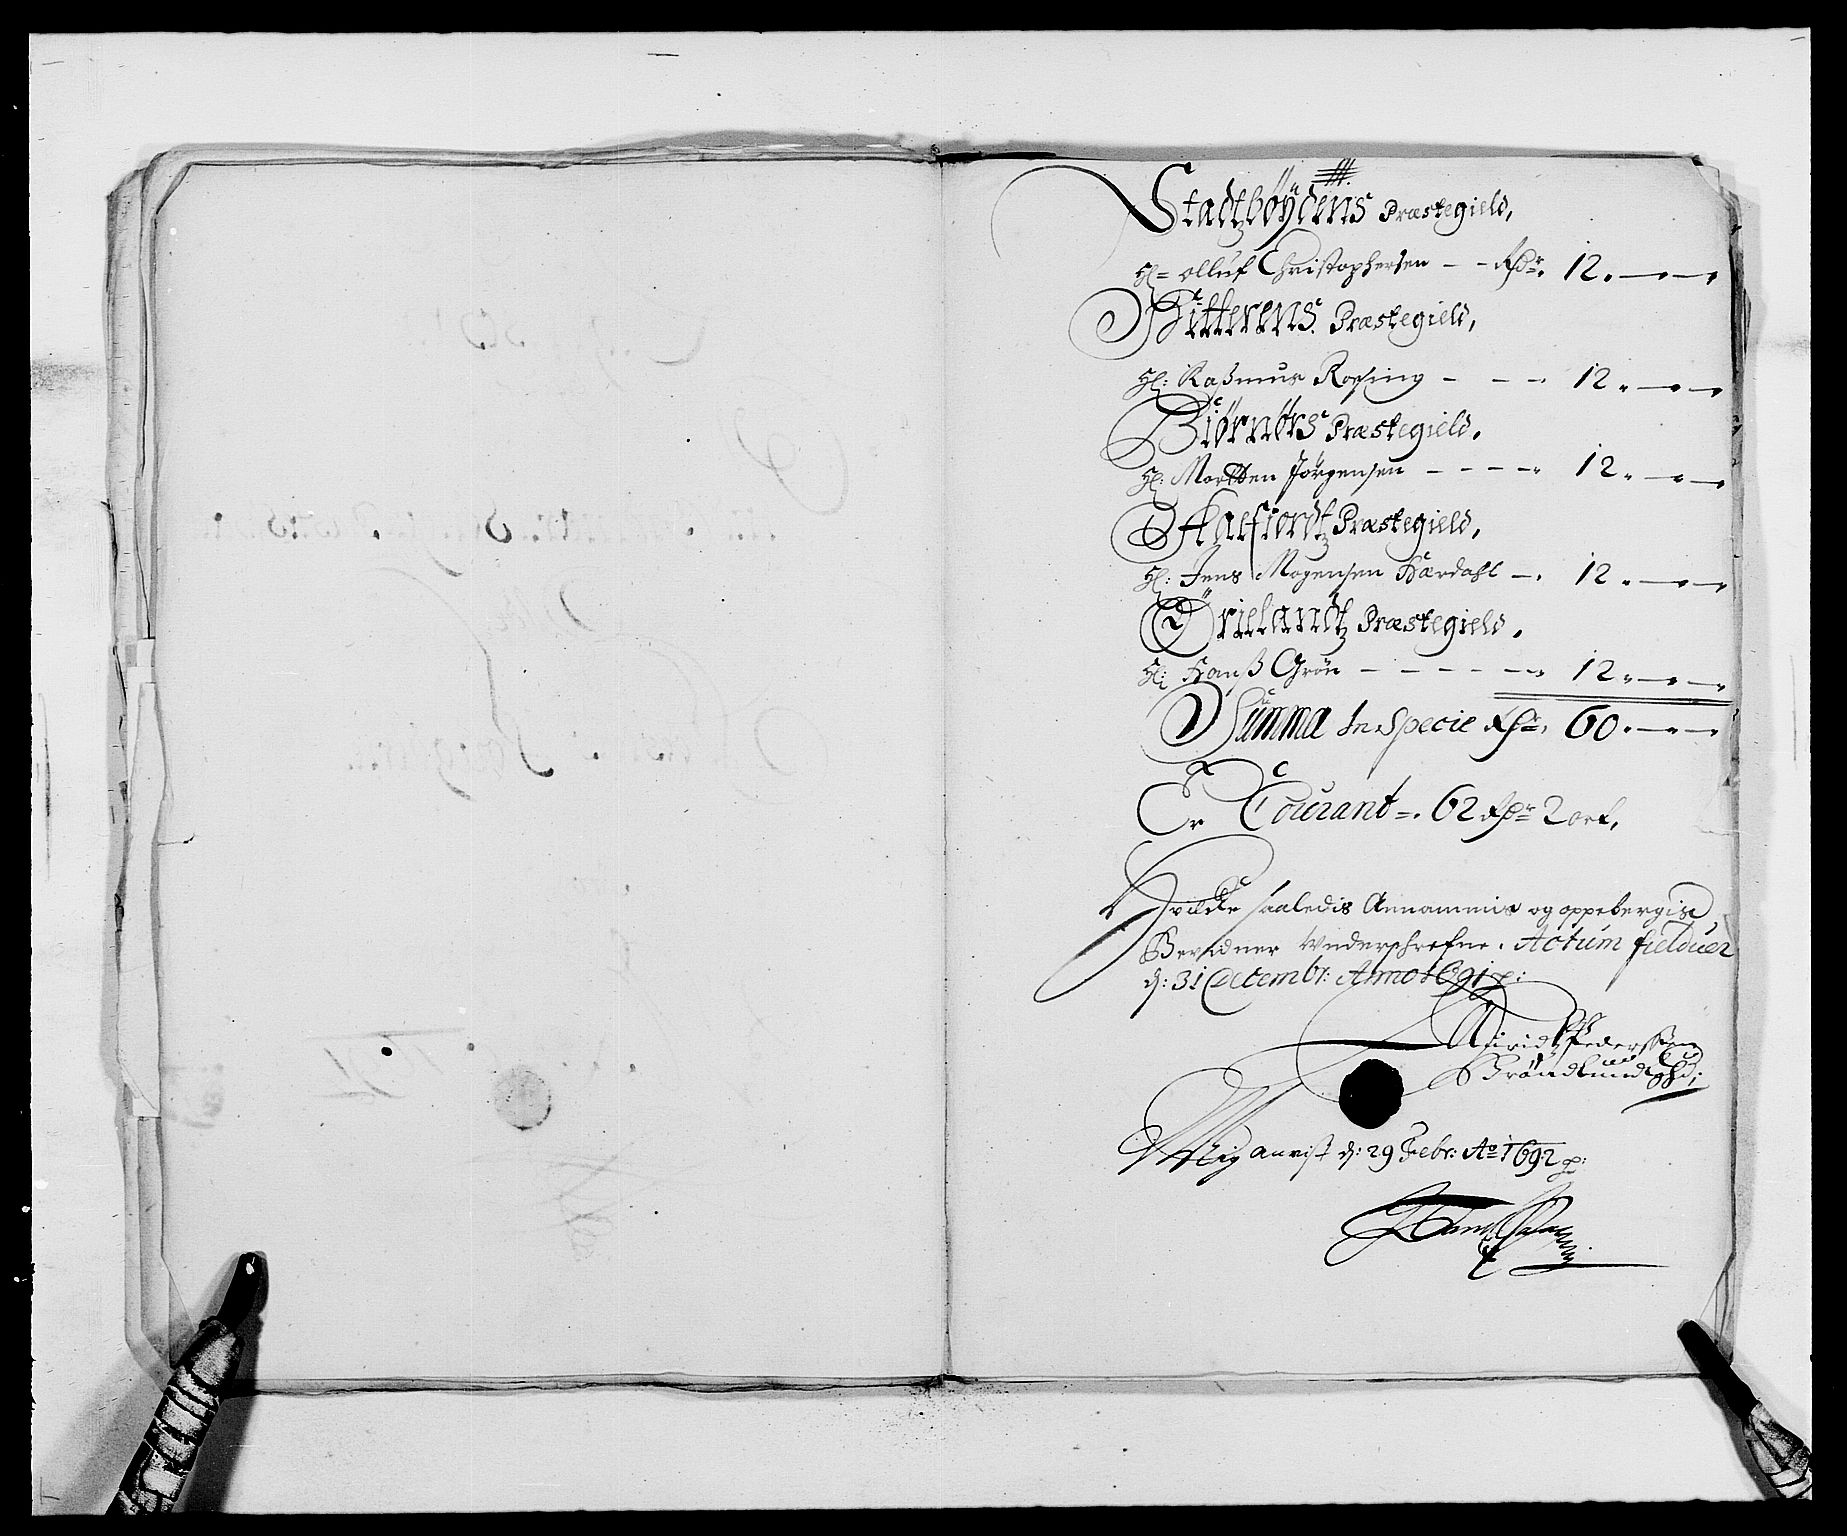 Stadtzbøÿdens Præstegield,
Hl= olluf Christophersen - - Rdr. 12. — —
Hitterens. Præstegield,
Hl: Raßmus Rosing - - - 12. — —
Biørnørs Præstegield.
Hl: Mortten Jørgensen - - - - 12. — —
Aalfiordtz Præstegield,
Hl: Jens Mogensen Hærdahl -. 12. — —
Ørielandtz Præstegield.
Hl: Hanß Grøn - - - - - 12. — —
Summa In Specie Rdr. 60. — —
Er Courant =. 62 Rdr 2 ort,
Hvilcke saaledis Annammis og oppebergis
Bevidner Underschrefne. Actum fielduer
d: 31 Decembr: Anno 1691 p:
Pederssøn
Brøndlund
Mig anvist d: 29 Febr: Ao 1692 p: